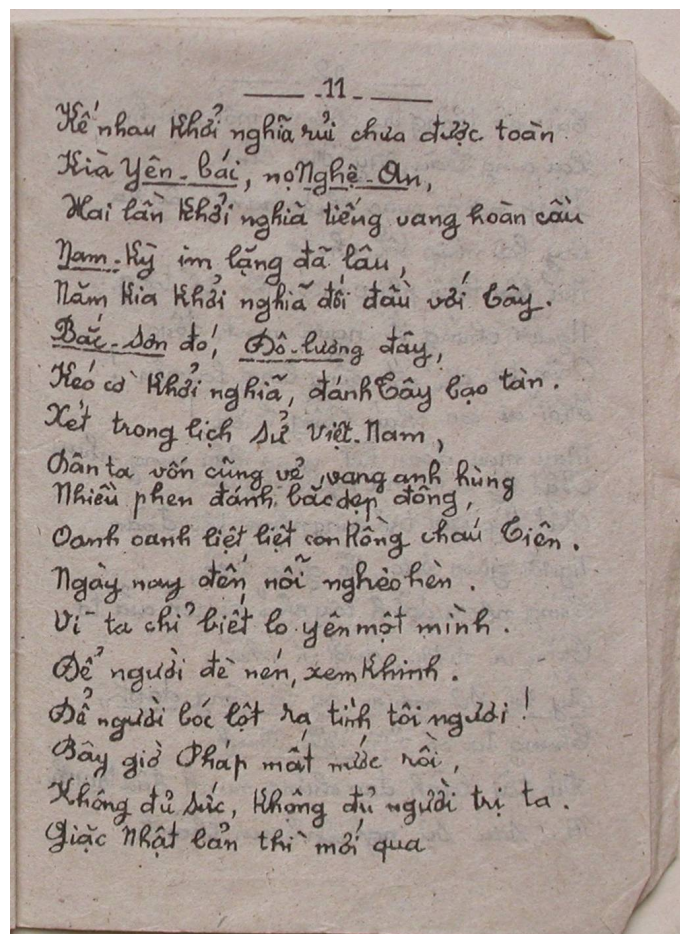 11
Kế nhau khởi nghĩa rủi chưa được toàn
Kià Yên-bái, nọ Nghệ-An,
Hai lần khởi nghĩa tiếng vang hoàn cầu
Nam-Kỳ im lặng đã lâu,
Năm kia khởi nghĩa đối đầu với Tây.
Bắc-Sơn đó, Đô-lương đây,
Kéo cờ khởi nghĩa, đánh Tây bạo tàn.
Xét trong lịch sử Việt-Nam,
Dân ta vốn cũng vẻ vang anh hùng
Nhiều phen đánh bắc dẹp đông,
Oanh oanh liệt liệt con Rồng cháu Tiên.
Ngày nay đến nỗi nghèo hèn.
Vì ta chỉ biết lo yên một mình.
Để người đè nén, xem khinh.
Để người bóc lột ra tình tôi ngươi!
Bây giờ Pháp mất nước rồi,
Không đủ sức, không đủ người trị ta.
Giặc Nhật bản thì mới qua